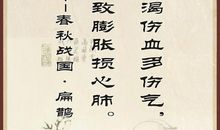 渴伤血多伤气，
致膨胀损心肺。
——春秋战国·扁鹊